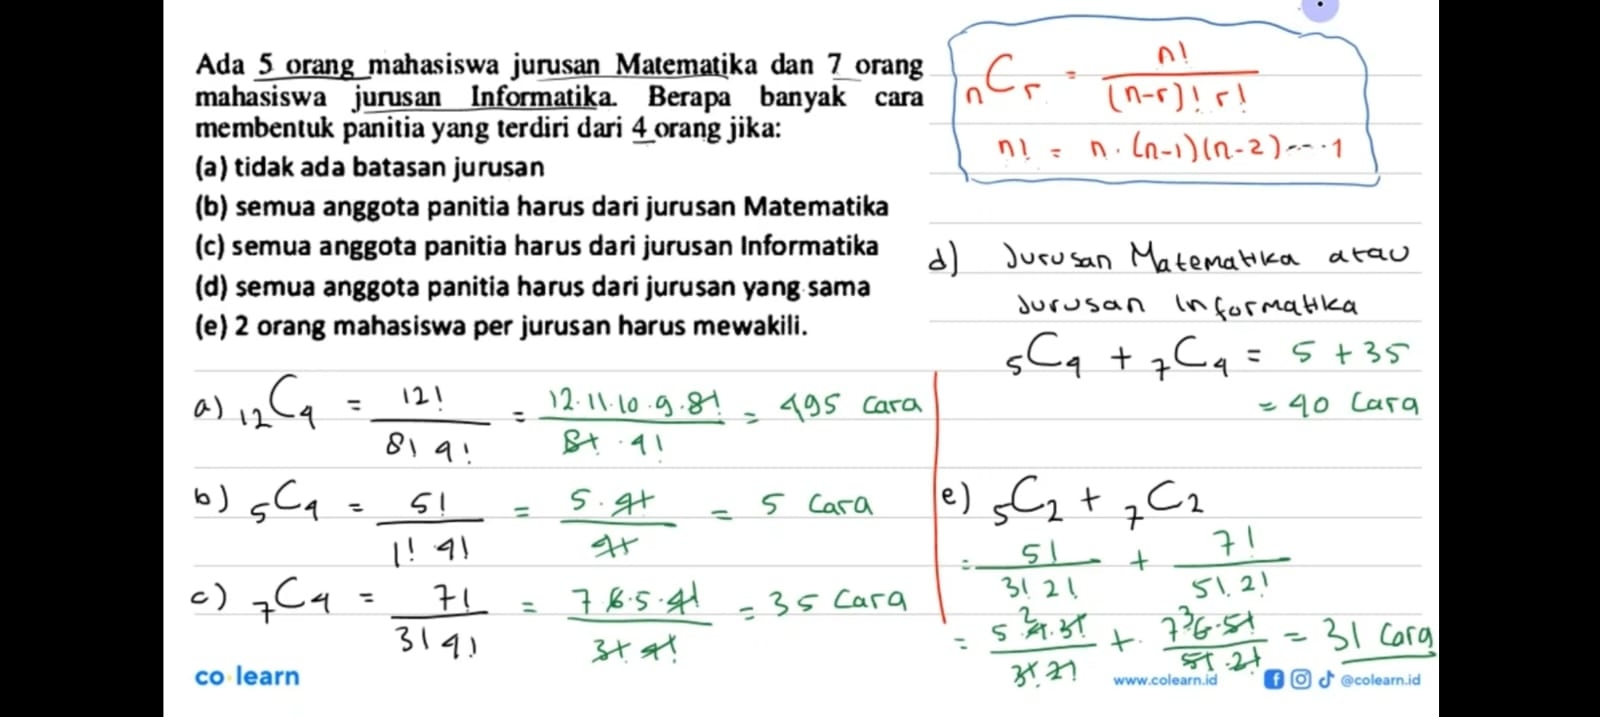 Ada 5 orang mahasiswa jurusan Matematika dan 7 orang
mahasiswa jurusan Informatika. Berapa banyak cara
membentuk panitia yang terdiri dari 4 orang jika:
(a) tidak ada batasan jurusan
(b) semua anggota panitia harus dari jurusan Matematika
(c) semua anggota panitia harus dari jurusan Informatika
(d) semua anggota panitia harus dari jurusan yang sama
(e) 2 orang mahasiswa per jurusan harus mewakili.
nCr = n! / (n-r)! r!
n! = n. (n-1)(n-2)....1
a) 12C4 = 12! / 8! 4! = 12.11.10.9.8! / 8! . 4! = 495 Cara
b) 5C4 = 5! / 1! 4! = 5.4! / 4! = 5 Cara
c) 7C4 = 7! / 3! 4! = 7 6.5.4! / 3! 4! = 35 Cara
d) Jurusan Matematika atau
Jurusan Informatika
5C4 + 7C4 = 5 + 35
= 40 Cara
e) 5C2 + 7C2
= 5! / 3! 2! + 7! / 5!. 2!
= 5 4.3! / 3! 2! + 7 6.5! / 5!.2! = 31 Cara
co learn
www.colearn.id
@colearn.id